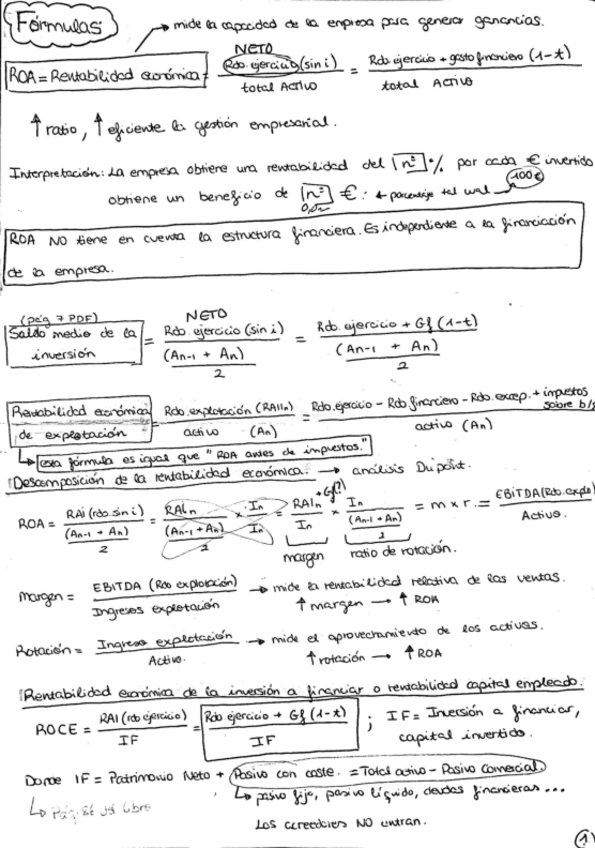 Fórmulas
→ mide la capacidad de la empresa para generar ganancias.
ROA = Rentabilidad económica = NETO Rdo. ejercicio (sin i) / total Activo = Rdo. ejercicio + gasto financiero (1-t) / total Activo
↑ ratio, ↑ eficiente la gestión empresarial.
Interpretación: La empresa obtiene una rentabilidad del [nº] % por cada € invertido
100€
obtiene un beneficio de [nº] € : ← porcentaje tal cual
0,0n
ROA NO tiene en cuenta la estructura financiera. Es independiente a la financiación
de la empresa.
(pág 7 PDF)
Saldo medio de la inversión = NETO Rdo. ejercicio (sin i) / ((An-1 + An) / 2) = Rdo. ejercicio + Gf (1-t) / ((An-1 + An) / 2)
Rentabilidad económica de explotación = Rdo. explotación (RAIIn) / activo (An) = Rdo. ejercicio - Rdo financiero - Rdo. excep. + impuestos sobre b/s / activo (An)
↳ esta fórmula es igual que "ROA antes de impuestos."
Descomposición de la rentabilidad económica. → análisis Dupont.
ROA = RAI (rdo. sin i) / ((An-1 + An) / 2) = RAIn / ((An-1 + An) / 2) × In / In = RAIn + Gf(?) / In × In / ((An-1 + An) / 2) = m × r. = EBITDA (Rdo. explo) / Activo.
margen ratio de rotación.
Margen = EBITDA (Rdo explotación) / Ingresos explotación → mide la rentabilidad relativa de las ventas.
↑ margen → ↑ ROA
Rotación = Ingreso explotación / Activo. → mide el aprovechamiento de los activos.
↑ rotación → ↑ ROA
Rentabilidad económica de la inversión a financiar o rentabilidad capital empleado.
ROCE = RAI (rdo ejercicio) / IF = Rdo ejercicio + Gf (1-t) / IF ; IF = Inversión a financiar,
capital invertido.
Donde IF = Patrimonio Neto + Pasivo con coste. = Total activo - Pasivo Comercial
↳ pasivo fijo, pasivo líquido, deudas financieras ...
Los acreedores NO entran.
1